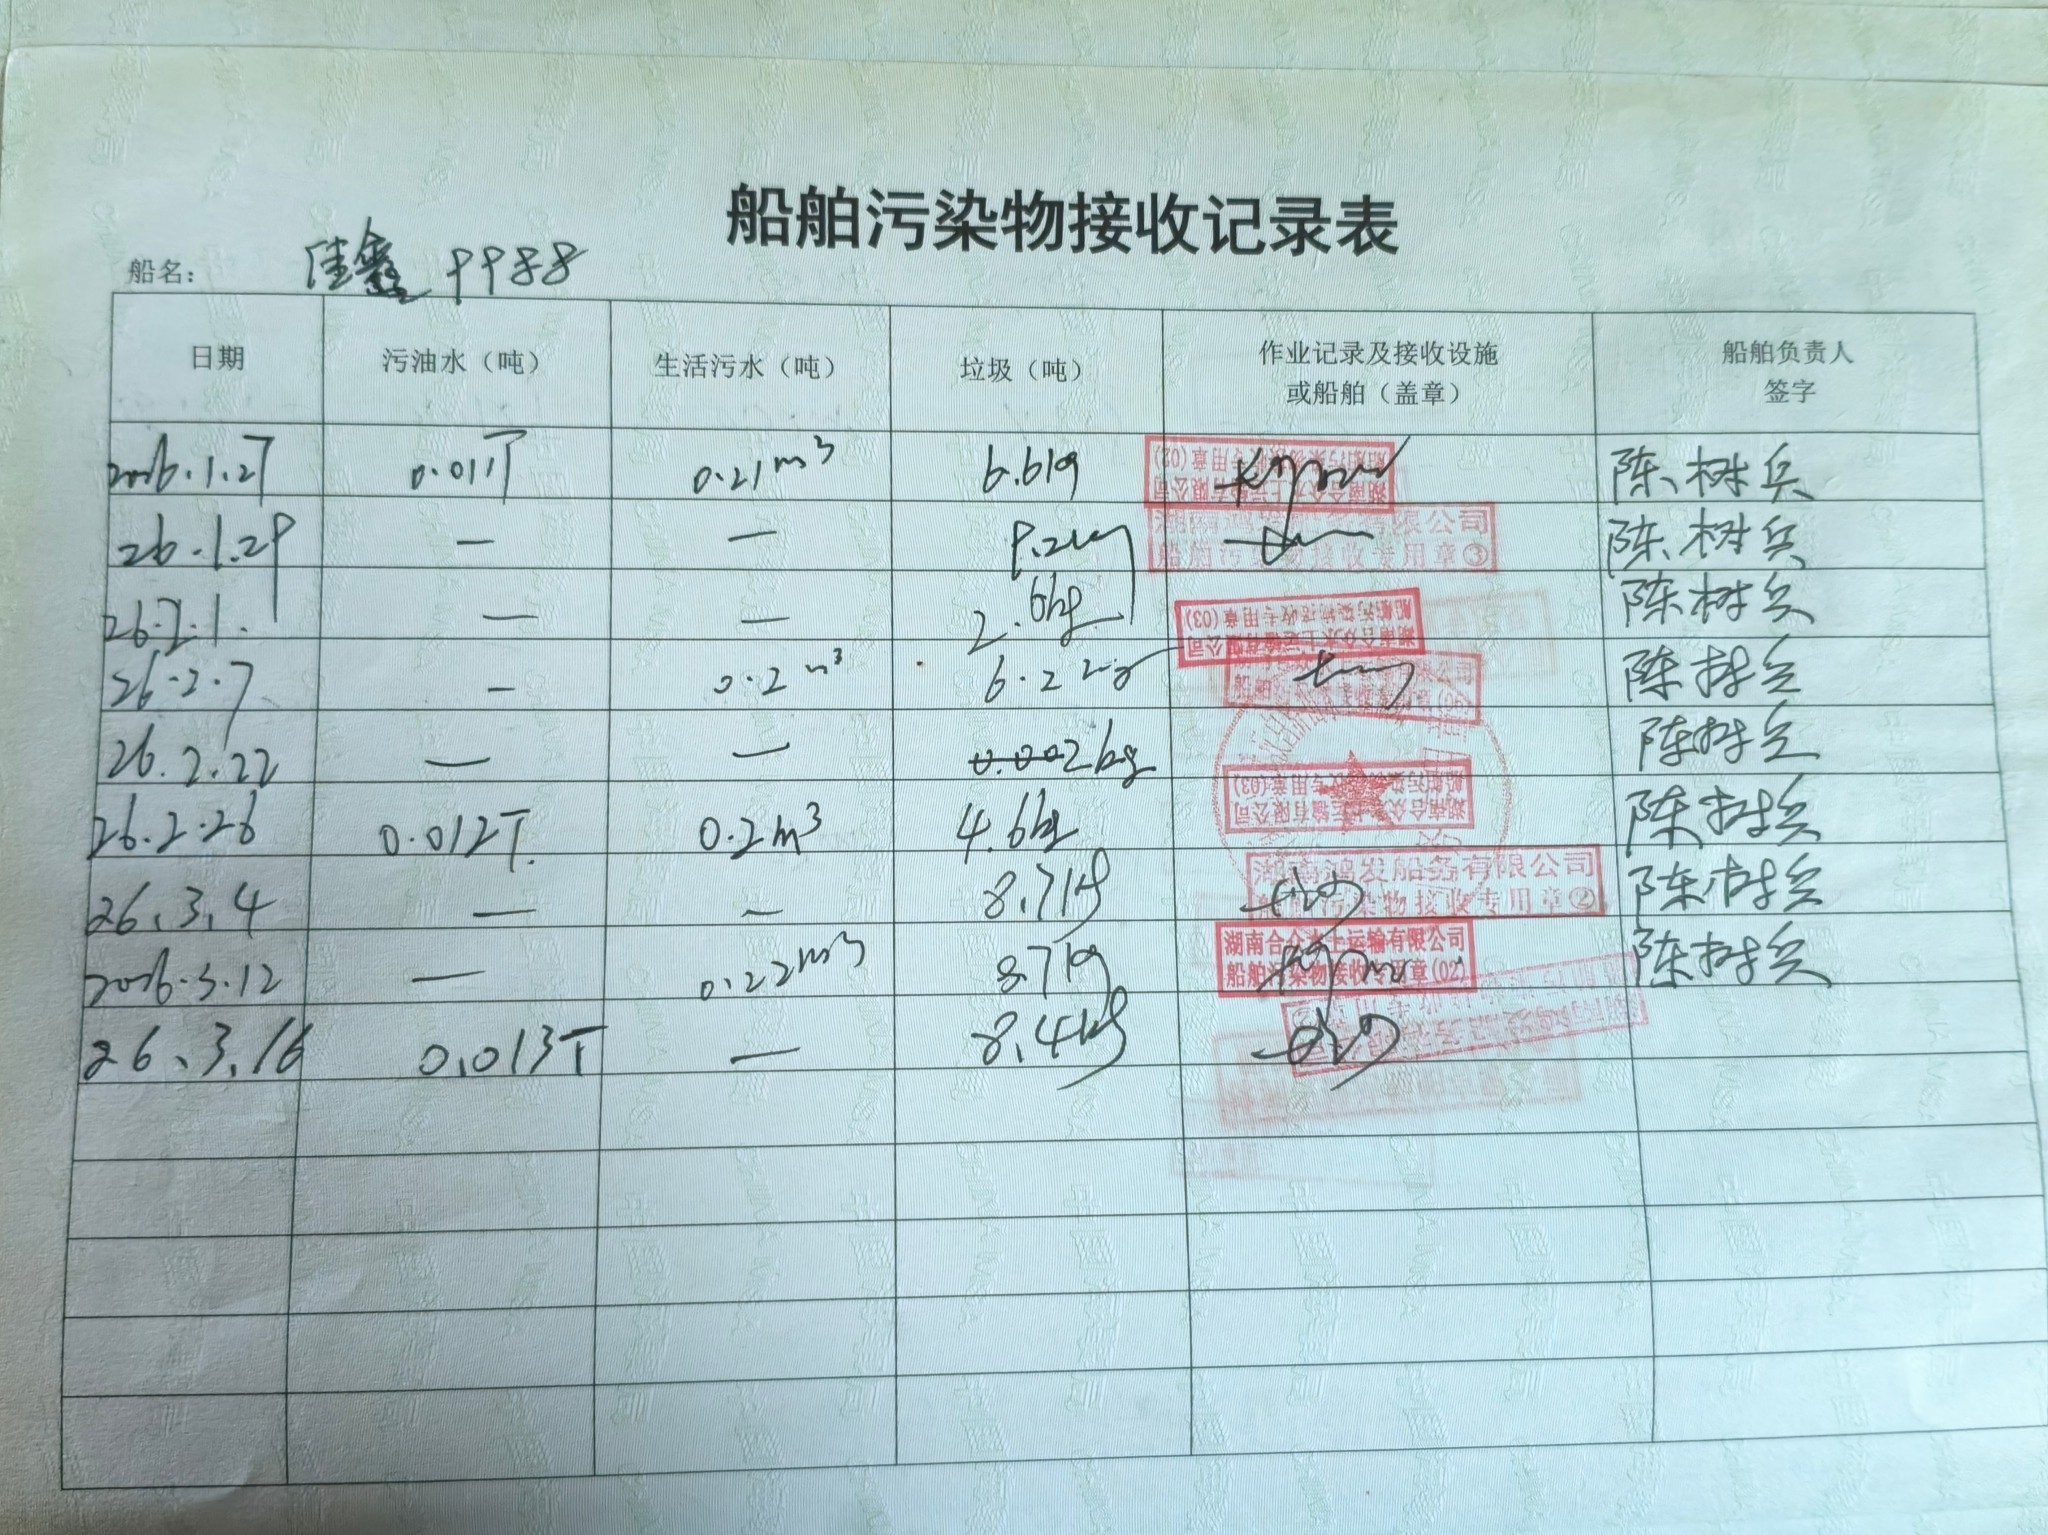 船舶污染物接收记录表
船名： 佳鑫 9988
日期 污油水（吨） 生活污水（吨） 垃圾（吨） 作业记录及接收设施或船舶（盖章） 船舶负责人签字
2026.1.27 0.01T 0.21m³ 6.6kg 湖南合众水上运输有限公司 船舶污染物接收专用章(02) 陈树兵
26.1.29 — — 9.2kg 湖南鸿发船务有限公司 船舶污染物接收专用章③ 陈树兵
26.2.1. — — 2.6kg 湖南合众水上运输有限公司 船舶污染物接收专用章(03) 陈树兵
26.2.7 — 0.2m³ 6.2kg 陈树兵
26.2.22 — — 0.002kg 陈树兵
26.2.26 0.012T. 0.2m³ 4.6kg 湖南合众水上运输有限公司 船舶污染物接收专用章(03) 陈树兵
26.3.4 — — 8.7kg 湖南鸿发船务有限公司 船舶污染物接收专用章② 陈树兵
2026.3.12 — 0.22m³ 8.7kg 湖南合众水上运输有限公司 船舶污染物接收专用章(02) 陈树兵
26.3.16 0.013T — 8.4kg